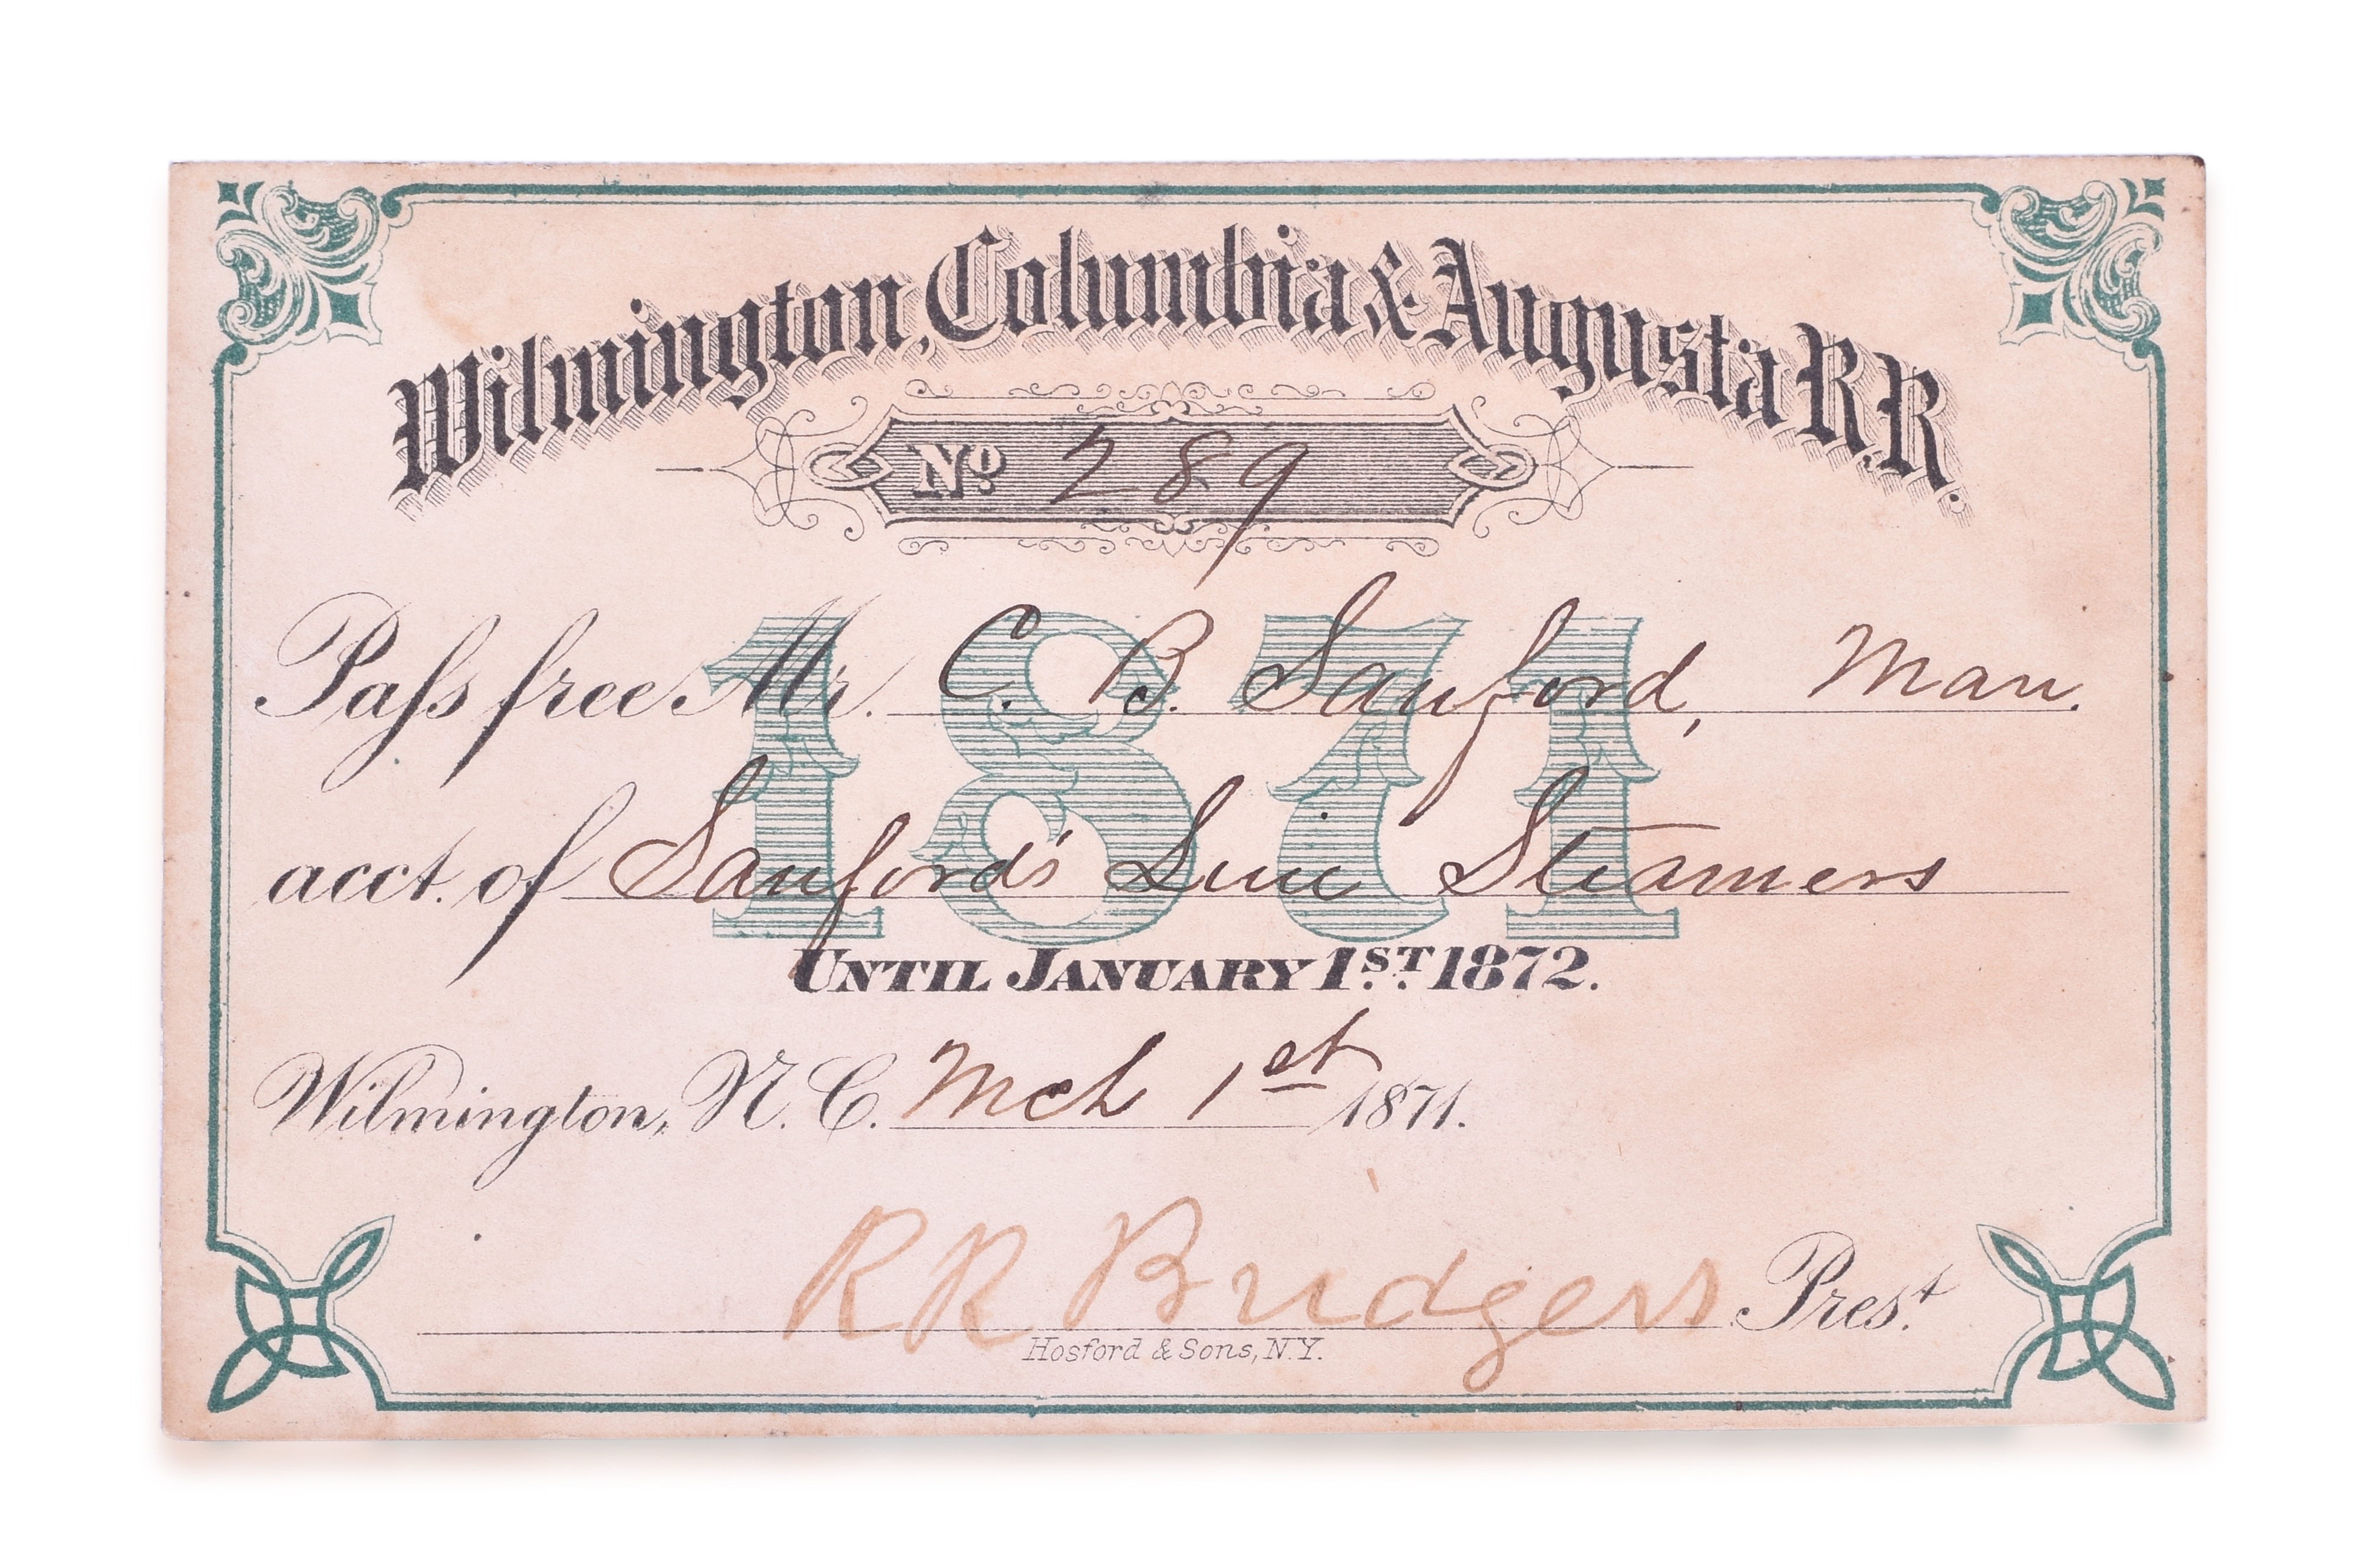 Wilmington, Columbia & Augusta R.R.
No. 289
1871
Pass free Mr. C. B. Sanford, Man.
acct. of Sanford's Line Steamers
UNTIL JANUARY 1ST. 1872.
Wilmington, N. C. Mch 1st 1871.
R R Bridgers Prest.
Hosford & Sons, N.Y.